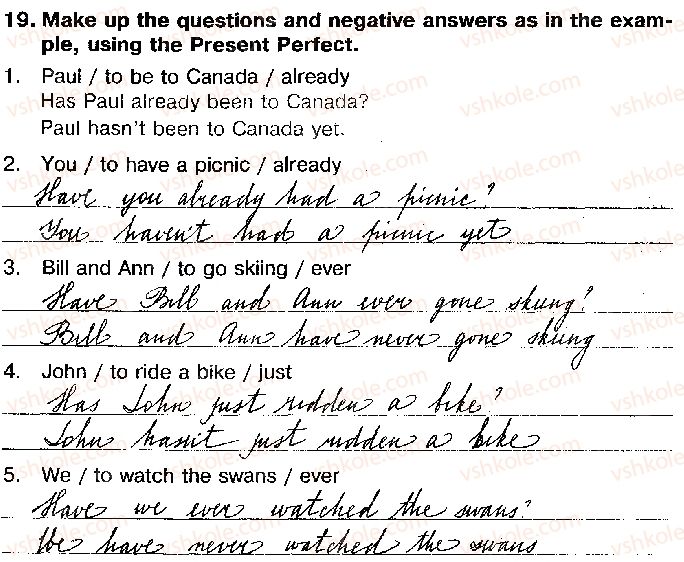 19. Make up the questions and negative answers as in the exam-
ple, using the Present Perfect.
1. Paul / to be to Canada / already
Has Paul already been to Canada?
Paul hasn't been to Canada yet.
2. You / to have a picnic / already
Have you already had a picnic?
You haven't had a picnic yet
3. Bill and Ann / to go skiing / ever
Have Bill and Ann ever gone skiing?
Bill and Ann have never gone skiing
4. John / to ride a bike / just
Has John just ridden a bike?
John hasn't just ridden a bike
5. We / to watch the swans / ever
Have we ever watched the swans?
We have never watched the swans